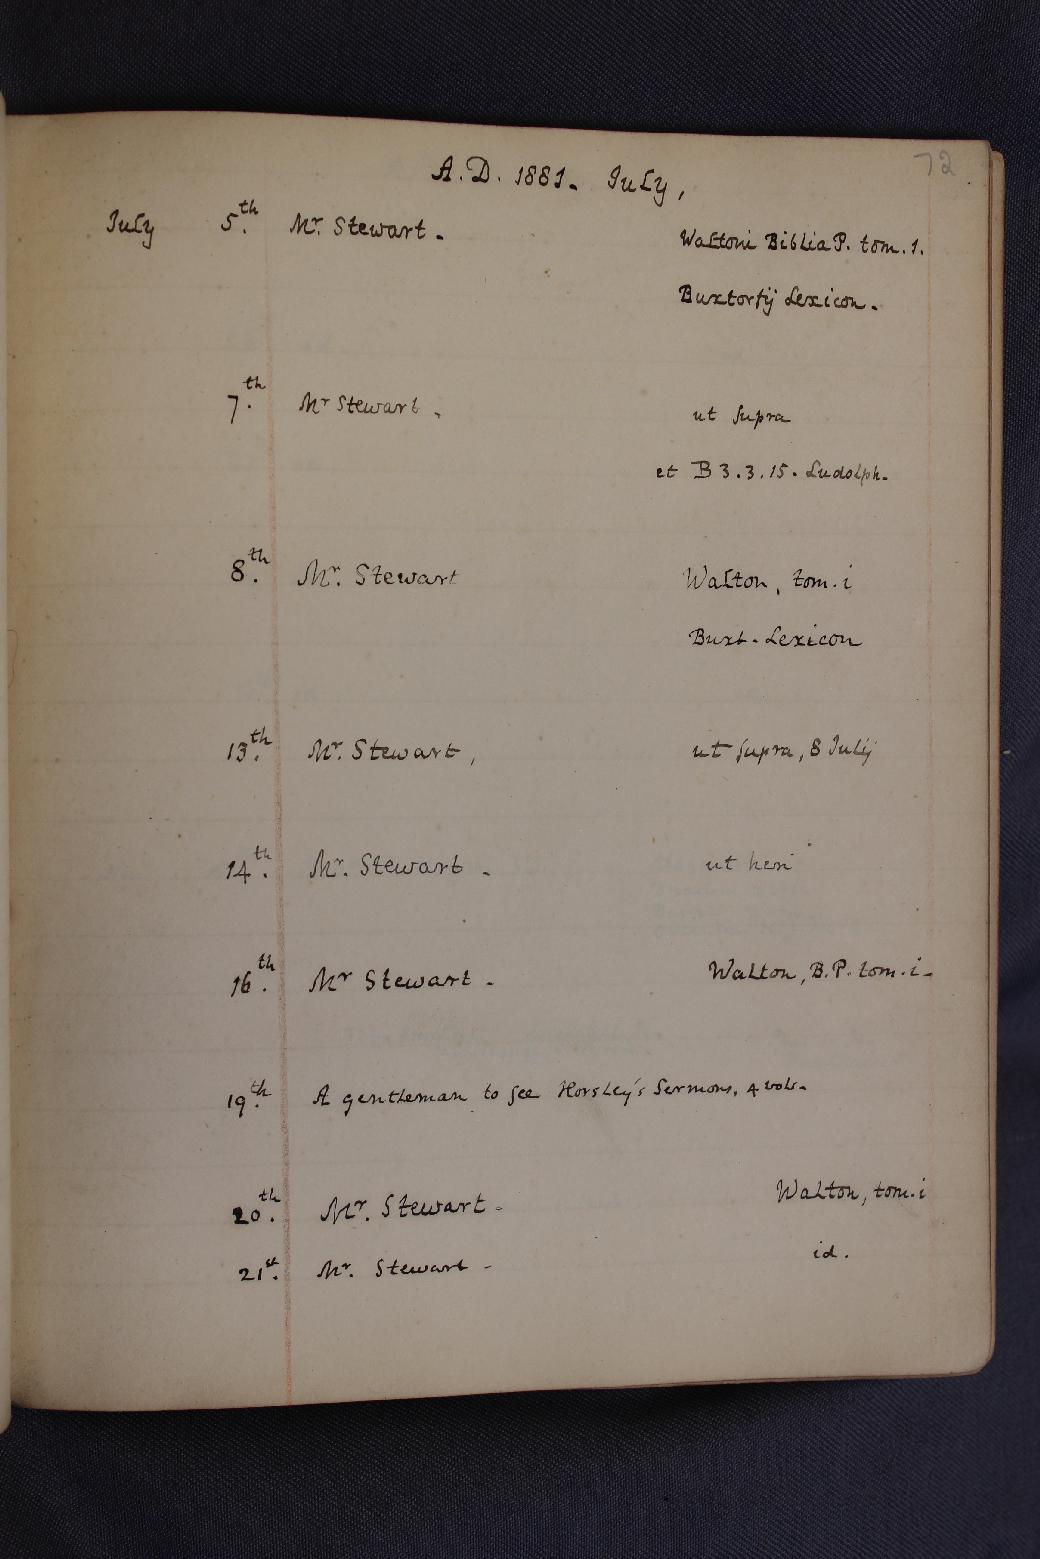 72
A.D. 1881. July,
July 5th. Mr. Stewart. Waltoni Biblia P. tom. 1.
Buxtorfij Lexicon.
7th. Mr Stewart. ut supra
et B 3.3.15. Ludolph.
8th. Mr. Stewart Walton, tom. i
Buxt. Lexicon
13th. Mr. Stewart, ut supra, 8 July
14th. Mr. Stewart. ut heri
16th. Mr Stewart. Walton, B.P. tom. i.
19th. A gentleman to see Horsley's Sermons, 4 vols.
20th. Mr. Stewart. Walton, tom. i
21st. Mr. Stewart. id.